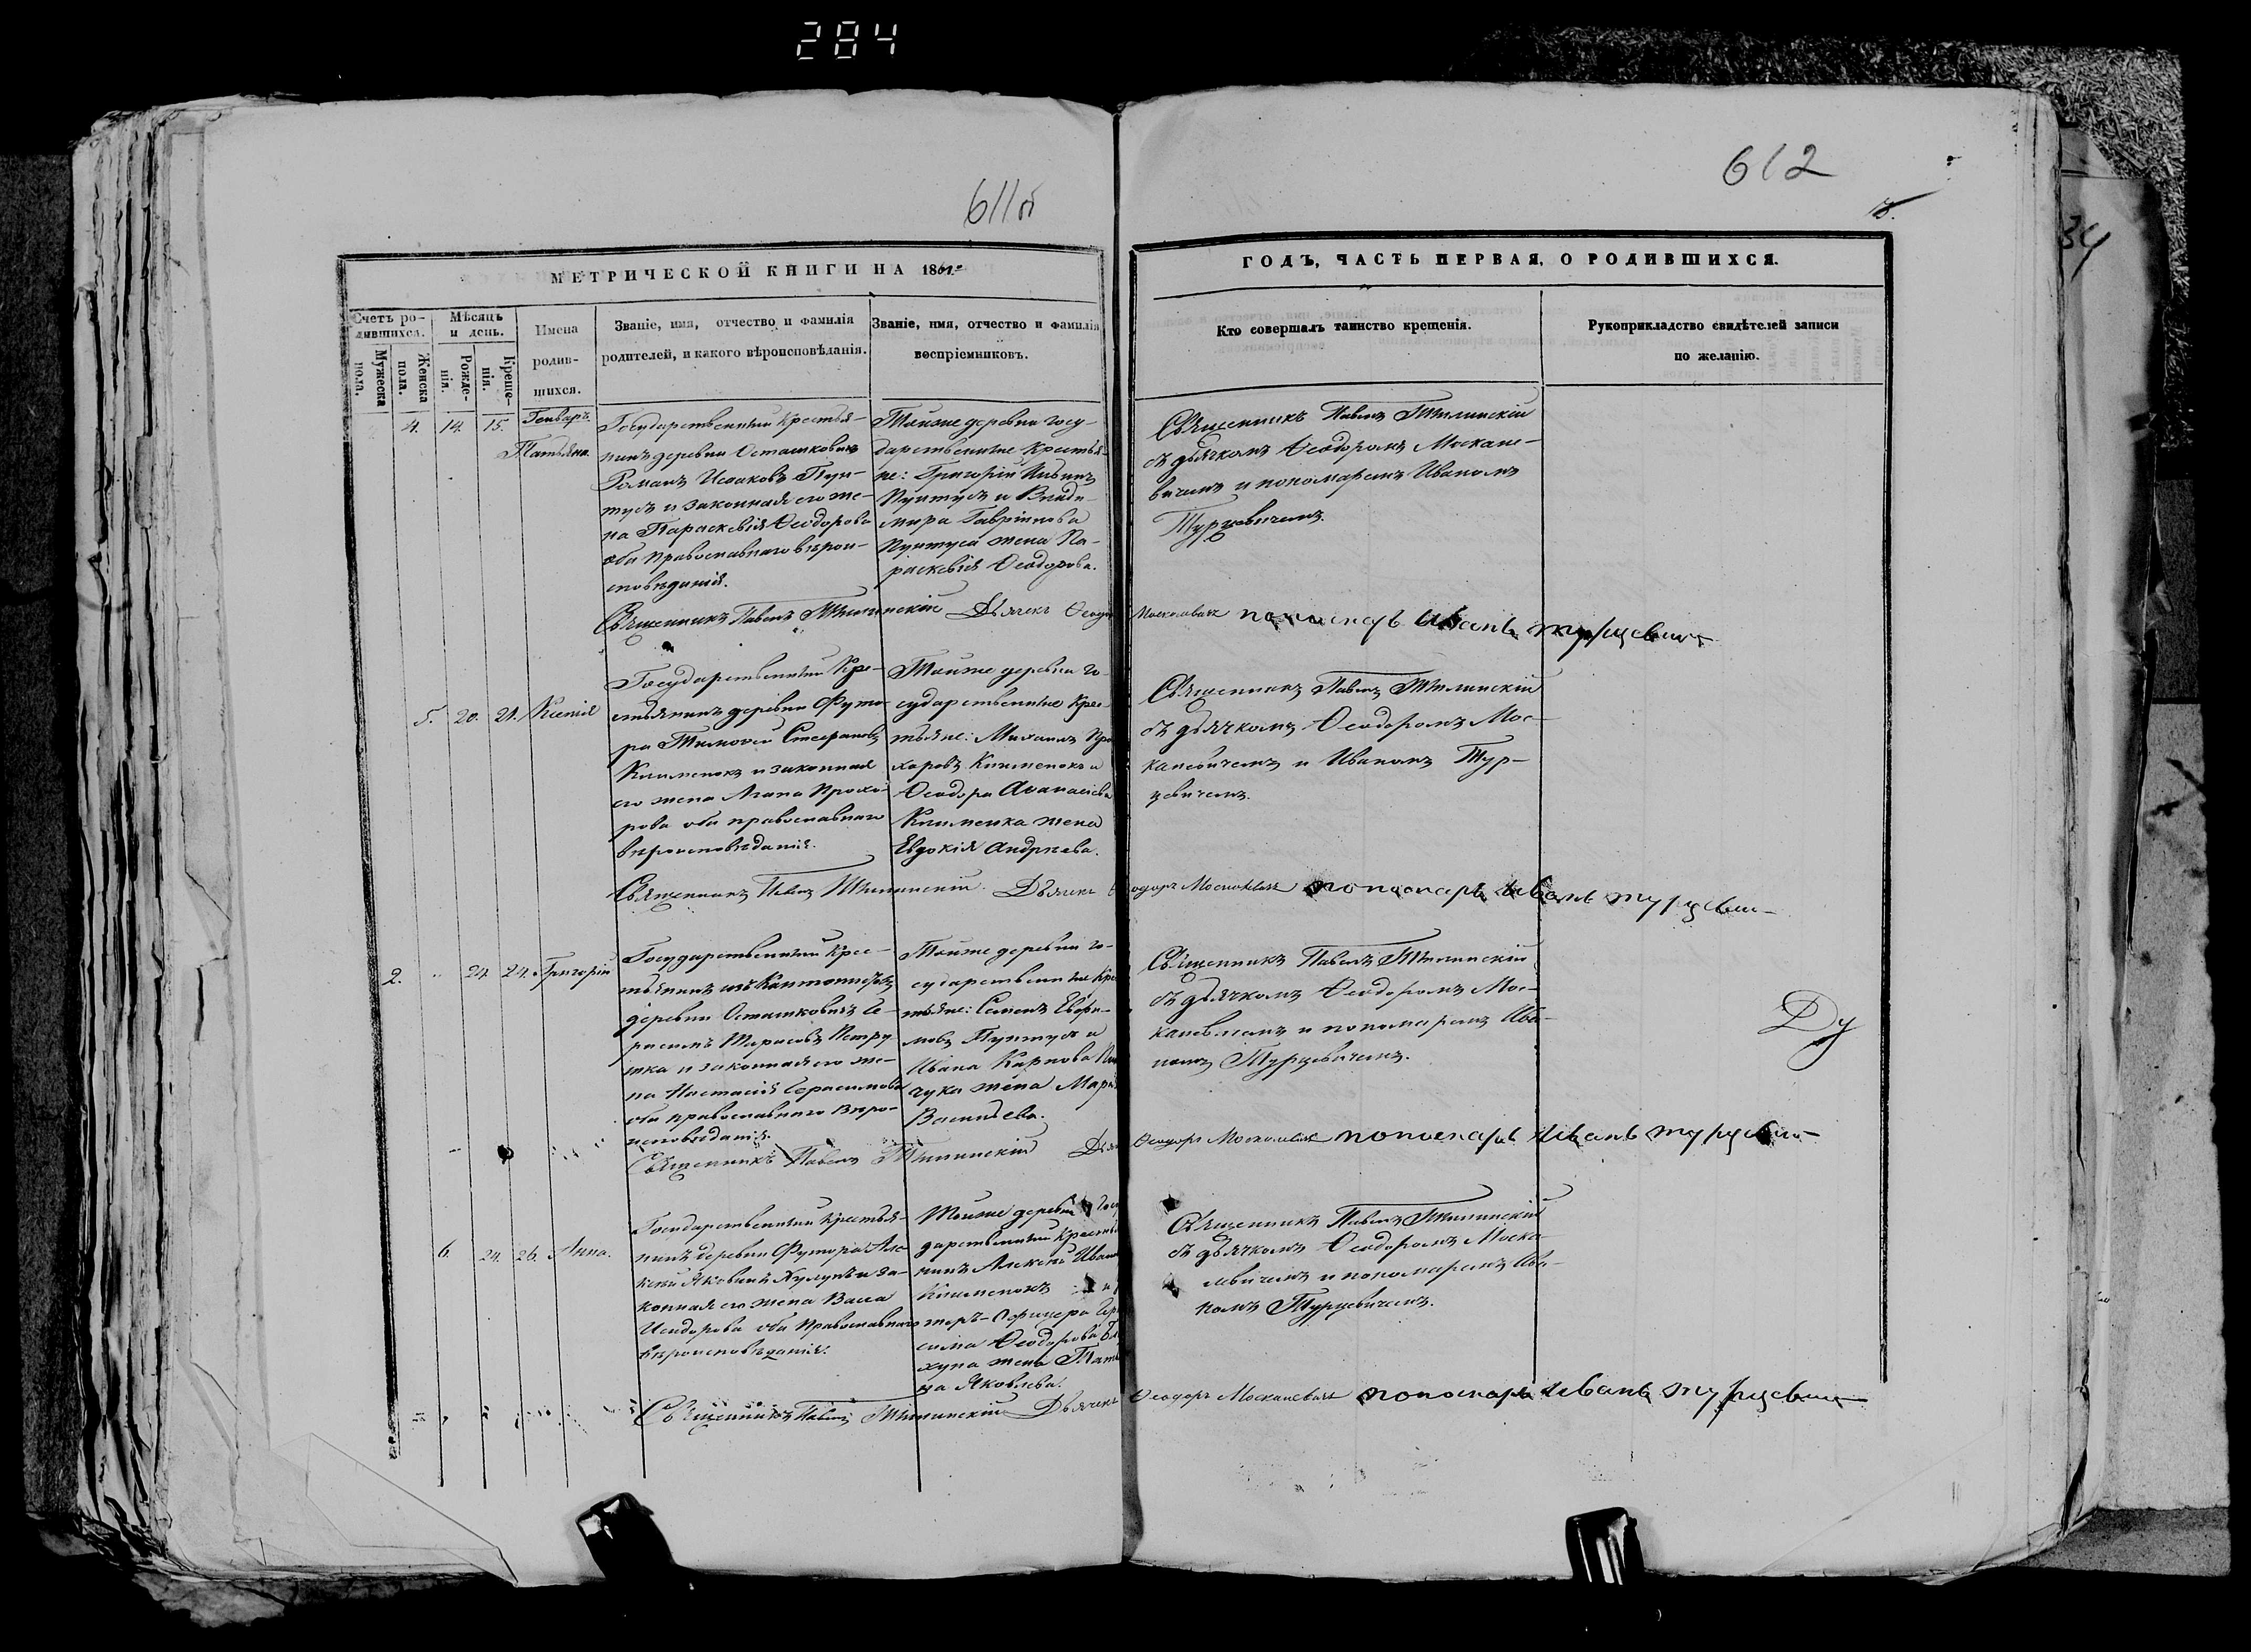 284
611об
612
34
МЕТРИЧЕСКОЙ КНИГИ НА 1861
ГОДЪ, ЧАСТЬ ПЕРВАЯ, О РОДИВШИХСЯ.
Счетъ ро-
дившихся.
Мужеска
пола.
Женска
пола.
Мѣсяцъ
и день.
Рожде-
нія.
Креще-
нія.
Имена
родив-
шихся.
Званіе, имя, отчество и фамилія
родителей, и какого вѣроисповѣданія.
Званіе, имя, отчество и фамилія
воспріемниковъ.
Кто совершалъ таинство крещенія.
Рукоприкладство свидѣтелей записи
по желанію.
4. 14. 15. Генваръ.
Татьяна.
Государственный крестья-
нинъ деревни Осташковичъ
Романъ Исаковъ Пун-
тусъ и законная его же-
на Параскевія Ѳеодорова
оба православнаго вѣрои-
сповѣданія.
Тойже деревни госу-
дарственные крестья-
не: Григорій
Пунтусъ и Влади-
мира Гавріилова
Пунтуса жена Па-
раскевія Ѳеодорова.
Священникъ Павелъ
съ дьячкомъ Ѳеодоромъ Москале-
вичемъ и пономаремъ Иваномъ
Турцевичемъ.
Священникъ Павелъ Дьячекъ Ѳеодоръ Москалевичъ пономарь иванъ турцевич
5. 20. 21. Ксенія
Государственный Кре-
стьянинъ деревни Футо-
ра Тимоѳей Стефановъ
Клименокъ и законная
его жена Агапа Прохо-
рова оба православнаго
вѣроисповѣданія.
Тойже деревни го-
сударственные крес-
тьяне: Михаилъ Про
хоровъ Клименокъ и
Ѳеодора Аѳанасіева
Клименка жена
Евдокія Андреева.
Священникъ Павелъ
съ дьячкомъ Ѳеодоромъ Мос-
калевичемъ и Иваномъ Тур-
цевичемъ.
Священникъ Павелъ Дьячекъ Ѳеодоръ Москалевичъ пономарь иванъ турцевич
2. 24. 24. Григорій
Государственный крес-
тьянинъ изъ Кантонистовъ
деревни Осташковичъ Ге-
расимъ Тарасовъ Петру
шка и законная его же-
на Настасія Герасимова
оба православнаго вѣро-
исповѣданія.
Тойже деревни го-
сударственные Кре
тьяне: Семенъ Евфи-
мовъ Пунтусъ и
Ивана Карпова
чука жена Марі
Васильева.
Священникъ Павелъ
съ дьячкомъ Ѳеодоромъ Мос-
калевичемъ и пономаремъ Ива-
номъ Турцевичемъ.
Ду
Священникъ Павелъ Ѳеодоръ Москалевичъ пономарь иванъ турцевич
6. 24. 26. Анна.
Государственный крестья-
нинъ деревни Футора Але-
ксѣй Яковлевъ и за-
конная его жена Васса
Исидорова оба Православнаго
вѣроисповѣданія.
Тойже деревни Госу
дарственный крестья
нинъ Алексѣй Ивано
Клименокъ и
теръ-Офицера Гера
сима Ѳеодорова
хуна жена Татья
на Яковлева.
Священникъ Павелъ
съ дьячкомъ Ѳеодоромъ Моска-
левичемъ и пономаремъ Ива-
номъ Турцевичемъ.
Священникъ Павелъ Дьячекъ Ѳеодоръ Москалевичъ пономарь иванъ турцевич